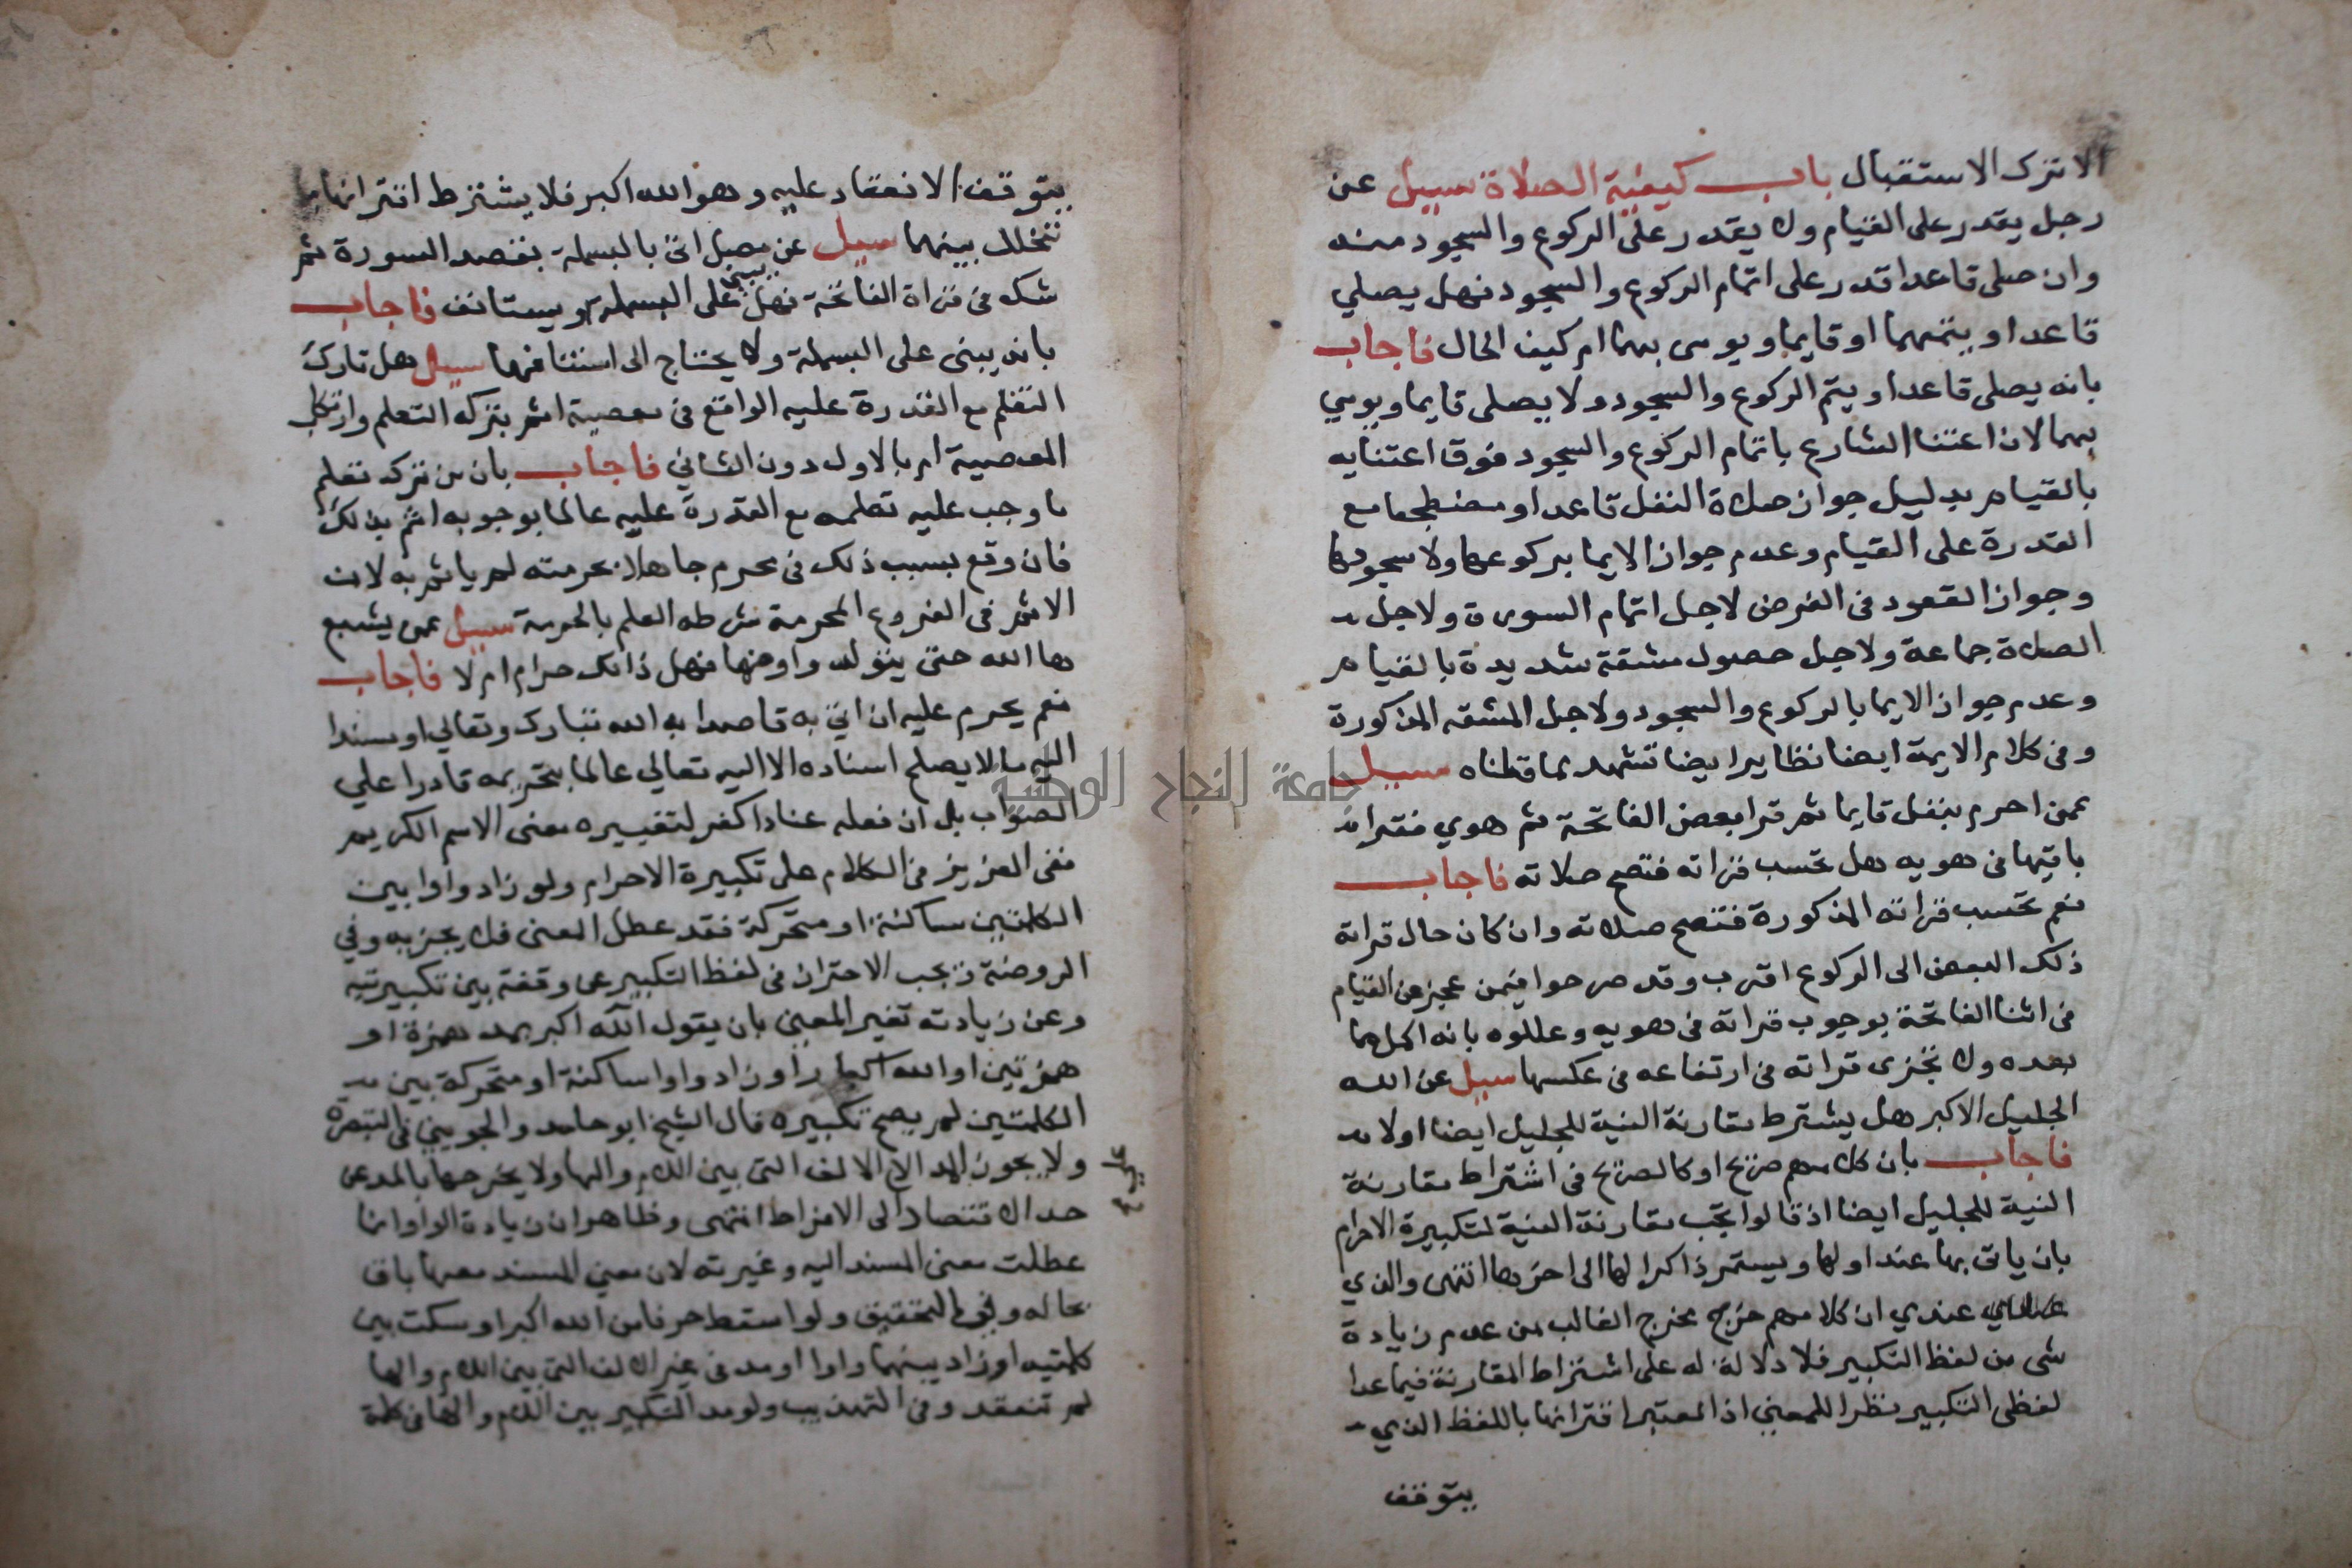 الا ترك الاستقبال باب كيفية الصلاة سيل عن
رجل يقدر على القيام ولا يقدر على الركوع والسجود منه
وان صلى قاعدا قدر على اتمام الركوع والسجود فهل يصلي
قاعدا ويتمهما او قايما ويومى بهما ام كيف الحال فاجاب
بانه يصلى قاعدا ويتم الركوع والسجود ولا يصلى قايما ويومي
بهما لان اعتنا الشارع باتمام الركوع والسجود فوق اعتنايه
بالقيام بدليل جواز صلاة النفل قاعدا ومضطجعا مع
القدرة على القيام وعدم جواز الايما بركوعها ولا سجودها
وجواز القعود في الفرض لاجل اتمام السورة ولاجل
الصلاة جماعة ولاجل حصول مشقة شديدة بالقيام
وعدم جواز الايما بالركوع والسجود ولاجل المشقه المذكورة
وفى كلام الايمة ايضا نظاير ايضا تشهد بما قلناه سيل
عمن احرم بنفل قايما ثم قرا بعض الفاتحة ثم هوي فقرا
باقيها فى هويه هل تحسب قراته فتصح صلاته فاجاب
نعم تحسب قراته المذكورة فتصح صلاته وان كان حال قراته
ذلك البعض الى الركوع اقرب وقد صرحوا فيمن عجز عن القيام
فى اثنا الفاتحة بوجوب قراته فى هويه وعللوه بانه اكمل مما
بعده ولا تجزى قراته فى ارتفاعه فى عكسها سيل عن الله
الجليل الاكبر هل يشترط مقارنة النية للجليل ايضا اولا
فاجاب بان كلامهم صريح او كالصريح فى اشتراط مقارنة
النية للجليل ايضا اذ قالوا تجب مقارنة النية لتكبيرة الاحرام
بان ياتى بها عند اولها ويستمر ذاكرا لها الى اخرها انتهى والذي
عندي ان كلامهم خرج مخرج الغالب من عدم زيادة
شى من لفظ التكبير فلا دلالة له على اشتراط المقارنة فيما عدا
لفظى التكبير نظرا للمعنى اذ المعتبر اقترانها باللفظ الذي
يتوقف
يتوقف الانعقاد عليه وهو الله اكبر فلا يشترط اقترانها بما
تخلل بينهما سيل عن مصل اتى بالبسملة بقصد السورة ثم
شك فى قراة الفاتحة فهل يبنى على البسملة او يستانف فاجاب
بانه يبنى على البسملة ولا يحتاج الى استئنافها سيل هل تارك
التعلم مع القدرة عليه الواقع فى معصية اثم بتركه التعلم وارتكاب
المعصية ام بالاول دون الثاني فاجاب بان من ترك تعلم
ما وجب عليه تعلمه مع القدرة عليه عالما بوجوبه اثم بذلك
فان وقع بسبب ذلك فى محرم جاهلا بحرمته لم ياثم به لان
الاثم فى الفروع المحرمة شرطه العلم بالحرمة سيل عمن يشبع
ها الله حتى يتولد واو منها فهل ذلك حرام ام لا فاجاب
نعم يحرم عليه ان اتي به قاصدا به الله تبارك وتعالي او مسندا
اليه ما لا يصلح اسناده الا اليه تعالي عالما بتحريمه قادرا علي
الصواب بل ان فعله عنادا كفر لتغييره معنى الاسم الكريم
ففى العزيز فى الكلام على تكبيرة الاحرام ولو زاد واوا بين
الكلمتين ساكنة او متحركة فقد عطل المعنى فلا يجزيه وفي
الروضة يجب الاحتراز فى لفظ التكبير عن وقفة بين تكبيرتيه
وعن زيادته تغير المعنى بان يقول الله اكبر بمد همزة او
همزتين او الله اكبار او زاد واوا ساكنة او متحركة بين
الكلمتين لم يصح تكبيره قال الشيخ ابو حامد والجويني فى التبصرة
ولا يجوز المد الا على الالف التى بين اللام والها ولا يخرجها بالمد عن
حد الاقتصاد الى الافراط انتهى وظاهر ان زيادة الواو انما
عطلت معنى المسند اليه وغيرته لان معنى المسند معها باق
بحاله وفى التحقيق ولو اسقط حرفا من الله اكبر او سكت بين
كلمتيه او زاد بينهما واوا او مد فى غير الالف التى بين اللام والها
لم تنعقد وفى التهذيب ولو مد التكبير بين اللام والها فى كلمة
جامعة النجاح الوطنية